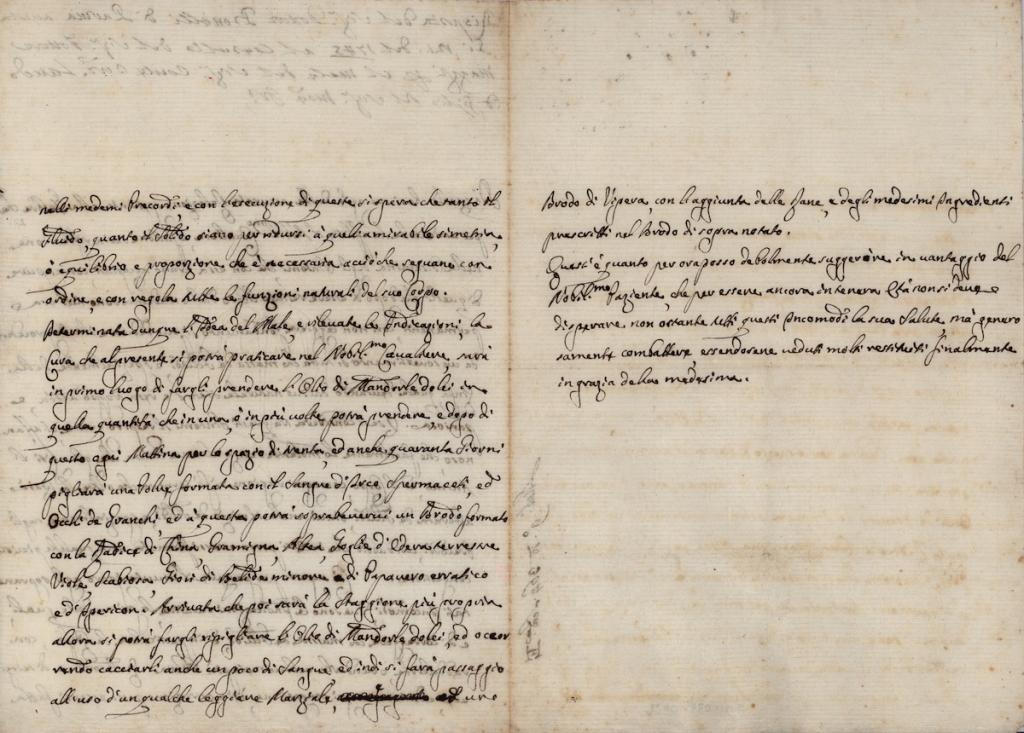 nelli medemi Precordi, e con l'esecuzione di queste si spera che tanto il
Fluido, quanto il Solido siano per ridursi à quell'amirabile simetria,
ò equilibrio e proporzione, che è necessaria acciò che seguano con
ordine, e con regola tutte le funzioni naturali del suo Corpo.
Determinata dunque l'Idea del Male, e rilevate le Indicazioni, la
Cura che al presente si potrà praticare nel Nobil.mo Cavaliere, sarà
in primo luogo di fargli prendere l'Olio di Mandorle dolci in
quella quantità, che in una, ò in più volte potrà prendere, e dopo di
questo ogni Mattina per lo spazio di trenta, ed anche quaranta Giorni
pigliarà una Polve formata con il Sangue d'Irco Spermaceti, ed
Occhi de Granchi, ed à questa potrà soprabeverci un Brodo formato
con la Radice di China, Gramigna, Altea, Foglie d'Edera terrestre
Viole, Scabiosa, Fiori di Bellide minore e di Papavero erratico
e d'Ipericon. Arrivata che poi sarà la Staggione più propria
allora si potrà fargli ripigliare l'Olio di Mandorle dolci, ed occor
rendo cacciarli anche un poco di Sangue ed indi si farà passaggio
all'uso d'un qualche leggiere Marziale, ed uno
Brodo di Vipera, con l'aggiunta delle Rane, e degli medesimi Ingredienti
prescritti nel Brodo di sopra notato.
Quest'è quanto per ora posso debolmente suggerire in vantaggio del
Nobil.mo Paziente, che per essere ancora in tenera Età non si deve
disperare non ostante tutti questi Incomodi la sua Salute, mà genero
samente combattere, essendosene veduti molti restituiti finalmente
in grazia della medesima.